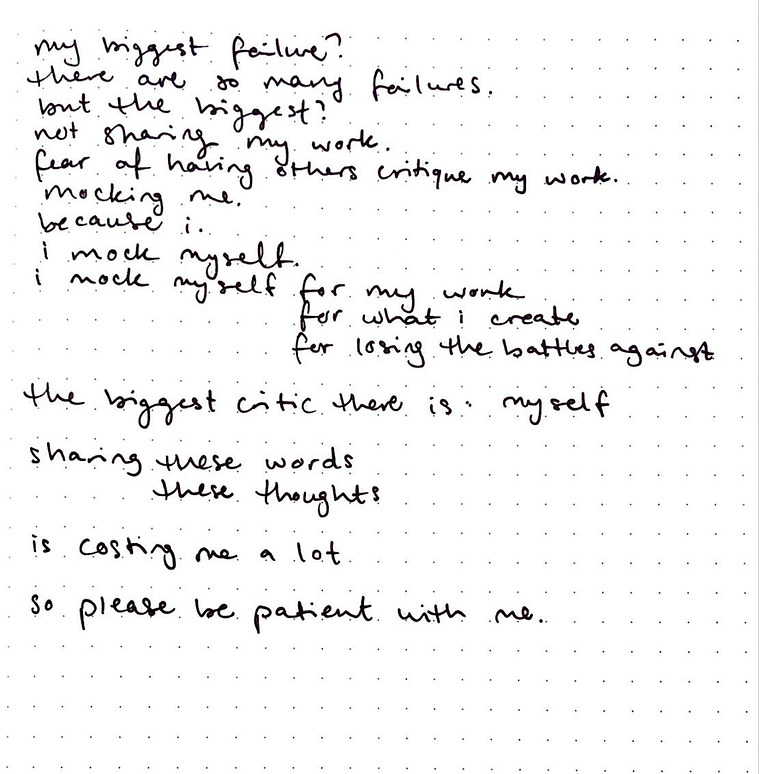 my biggest failure?
there are so many failures.
but the biggest?
not sharing my work.
fear of having others critique my work.
mocking me.
because i.
i mock myself.
i mock myself for my work
for what i create
for losing the battles against
the biggest critic there is. myself
sharing these words
these thoughts
is costing me a lot
so please be patient with me.